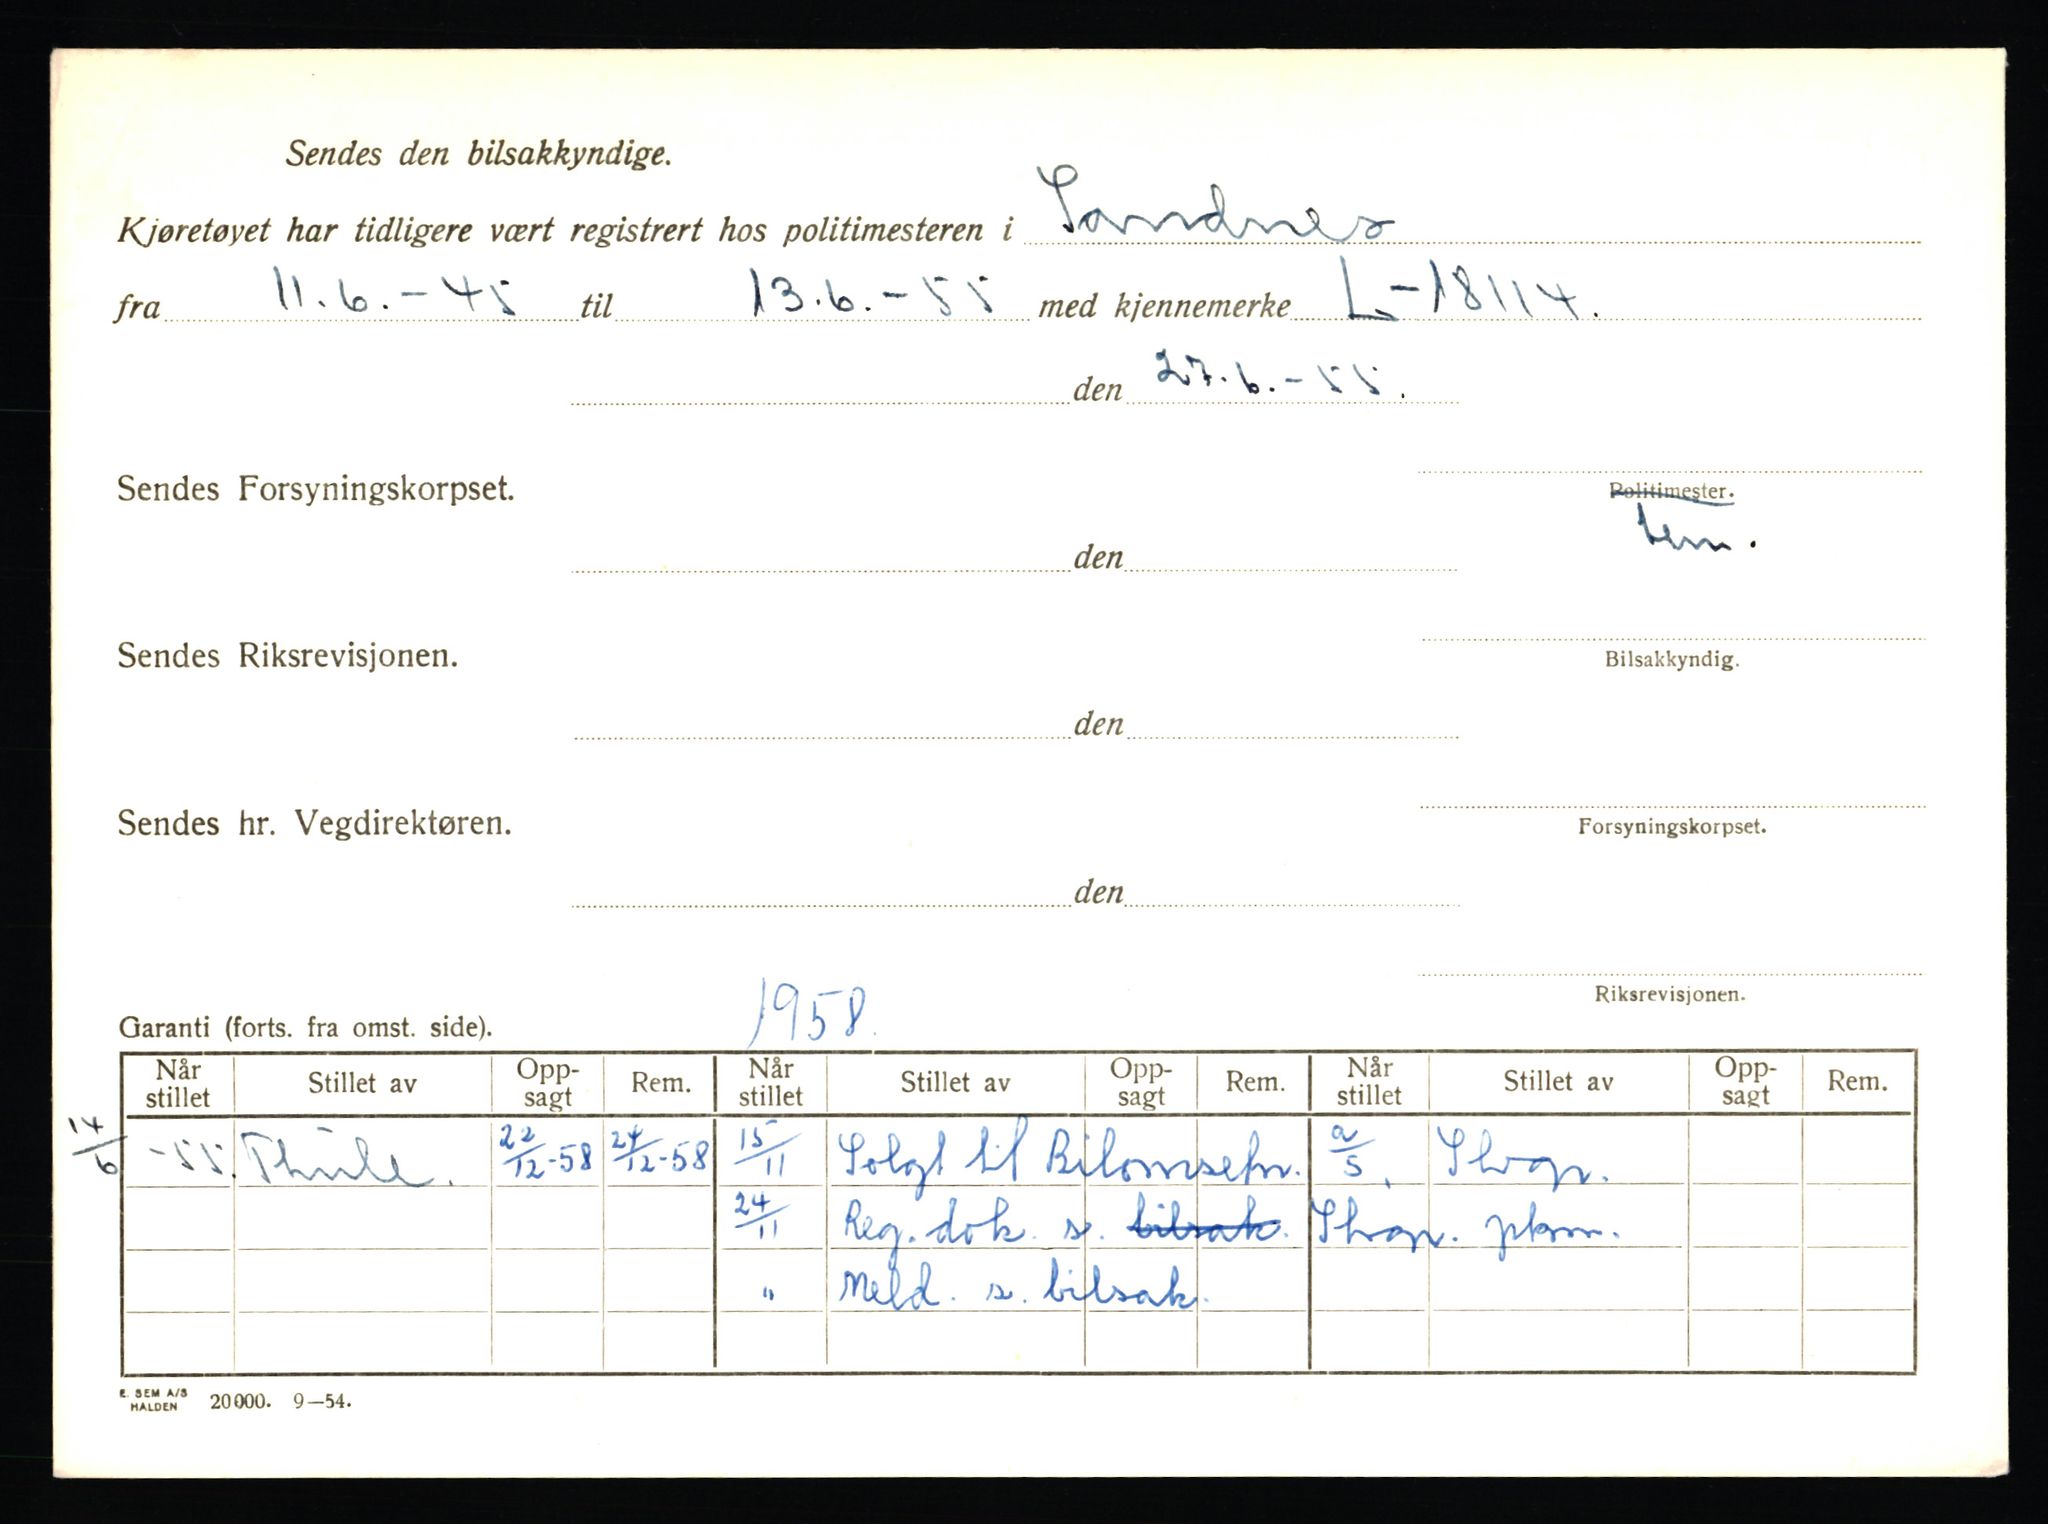 Sendes den bilsakkyndige.
Kjøretøyet har tidligere vært registrert hos politimesteren i Sandnes
fra 11.6.-45 til 13.6.-55 med kjennemerke L-18114.
den 27.6.-55.
Sendes Forsyningskorpset.
Politimester.
lem.
den
Sendes Riksrevisjonen.
Bilsakkyndig.
den
Sendes hr. Vegdirektøren.
Forsyningskorpset.
den
Riksrevisjonen.
Garanti (forts. fra omst. side). 1958.
Når stillet Stillet av Opp-sagt Rem. Når stillet Stillet av Opp-sagt Rem. Når stillet Stillet av Opp-sagt Rem.
14/6 -55. Thule. 22/12-58 24/12-58 15/11 Solgt til Bilomsefn. 2/5. Stvgr.
24/11 Reg. dok. s. bilsak. Stvgr. pkm.
" Meld. s. bilsak.
E. SEM A/S
HALDEN 20000. 9—54.